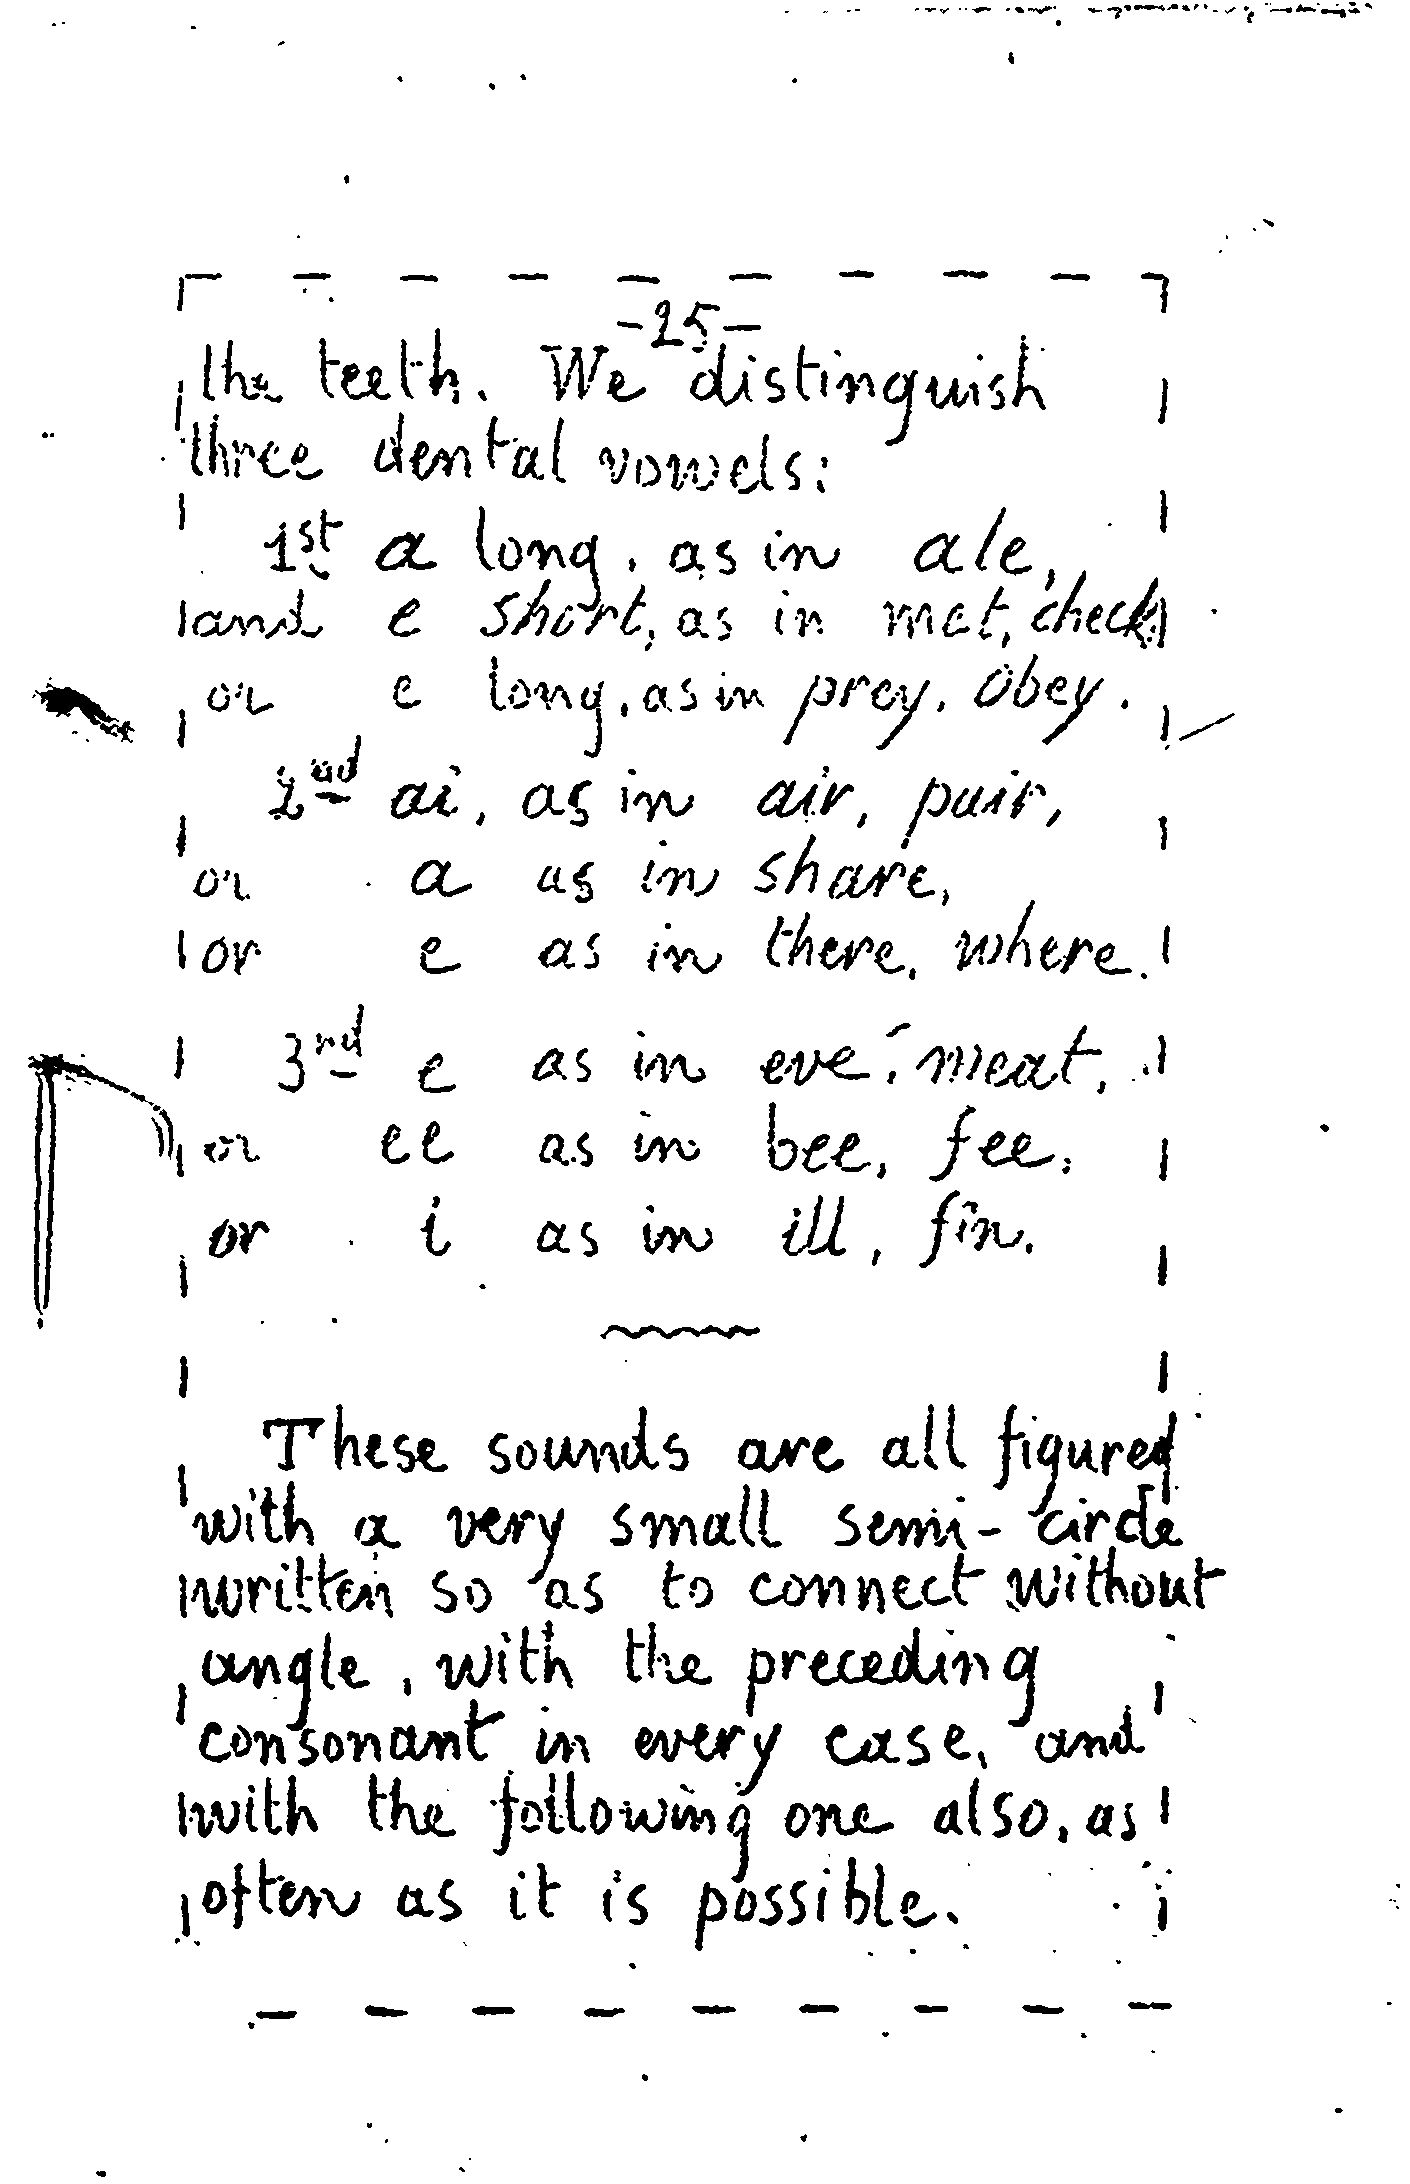 -25-
the teeth. We distinguish
three dental vowels:
1st a long, as in ale,
and e short, as in met, check
or e long, as in prey, obey.
2nd ai, as in air, pair,
or a as in share,
or e as in there, where.
3rd e as in eve, meat,
or ee as in bee, fee,
or i as in ill, fin.
These sounds are all figured
with a very small semi-circle
written so as to connect without
angle, with the preceding
consonant in every case, and
with the following one also, as
often as it is possible.